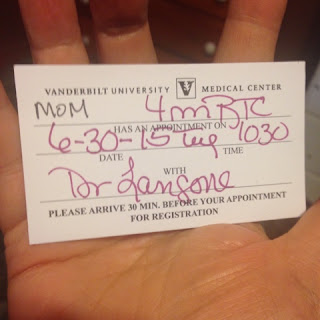 VANDERBILT UNIVERSITY V MEDICAL CENTER
MOM 4m RTC
HAS AN APPOINTMENT ON
6-30-15 1030
DATE TIME
WITH
Dr Langone
PLEASE ARRIVE 30 MIN. BEFORE YOUR APPOINTMENT
FOR REGISTRATION